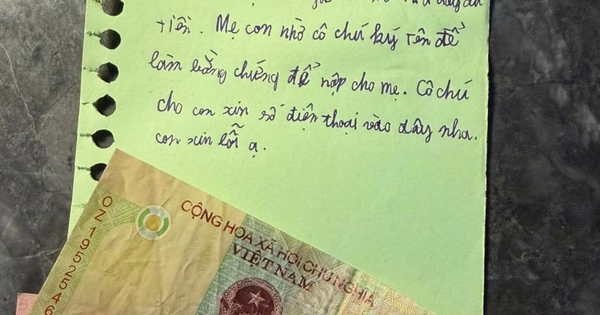 tiền. Mẹ con nhờ cô chú ký tên để
làm bằng chứng để nộp cho mẹ. Cô chú
cho con xin số điện thoại vào đây nha.
con xin lỗi ạ.
CỘNG HÒA XÃ HỘI CHỦ NGHĨA
VIỆT NAM
OZ 1952546